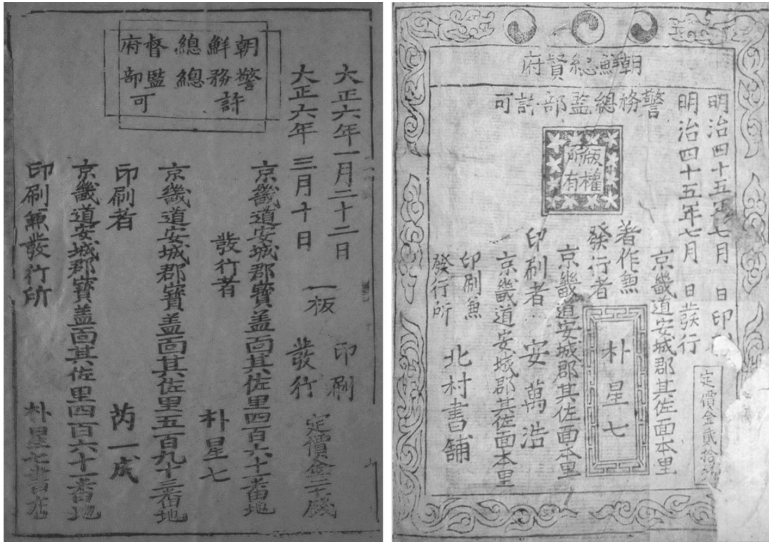 朝鮮總督府
警務總監部
許可
大正六年一月二十二日 印刷
大正六年三月十日 一板 發行
定價金
京畿道安城郡寶盖面其佐里四百六十一番地
發行者 朴星七
京畿道安城郡寶盖面其佐里五百九十三番地
印刷者 芮一成
京畿道安城郡寶盖面其佐里四百六十一番地
印刷兼發行所 朴星七書店
朝鮮総督府
警務総監部許可
版權
所有
明治四十五年七月 日印
明治四十五年七月 日發行
定價金貳拾
京畿道安城郡其佐面本里
著作兼
發行者 朴星七
京畿道安城郡其佐面本里
印刷者 安萬浩
京畿道安城郡其佐面本里
印刷兼
發行所 北村書舖